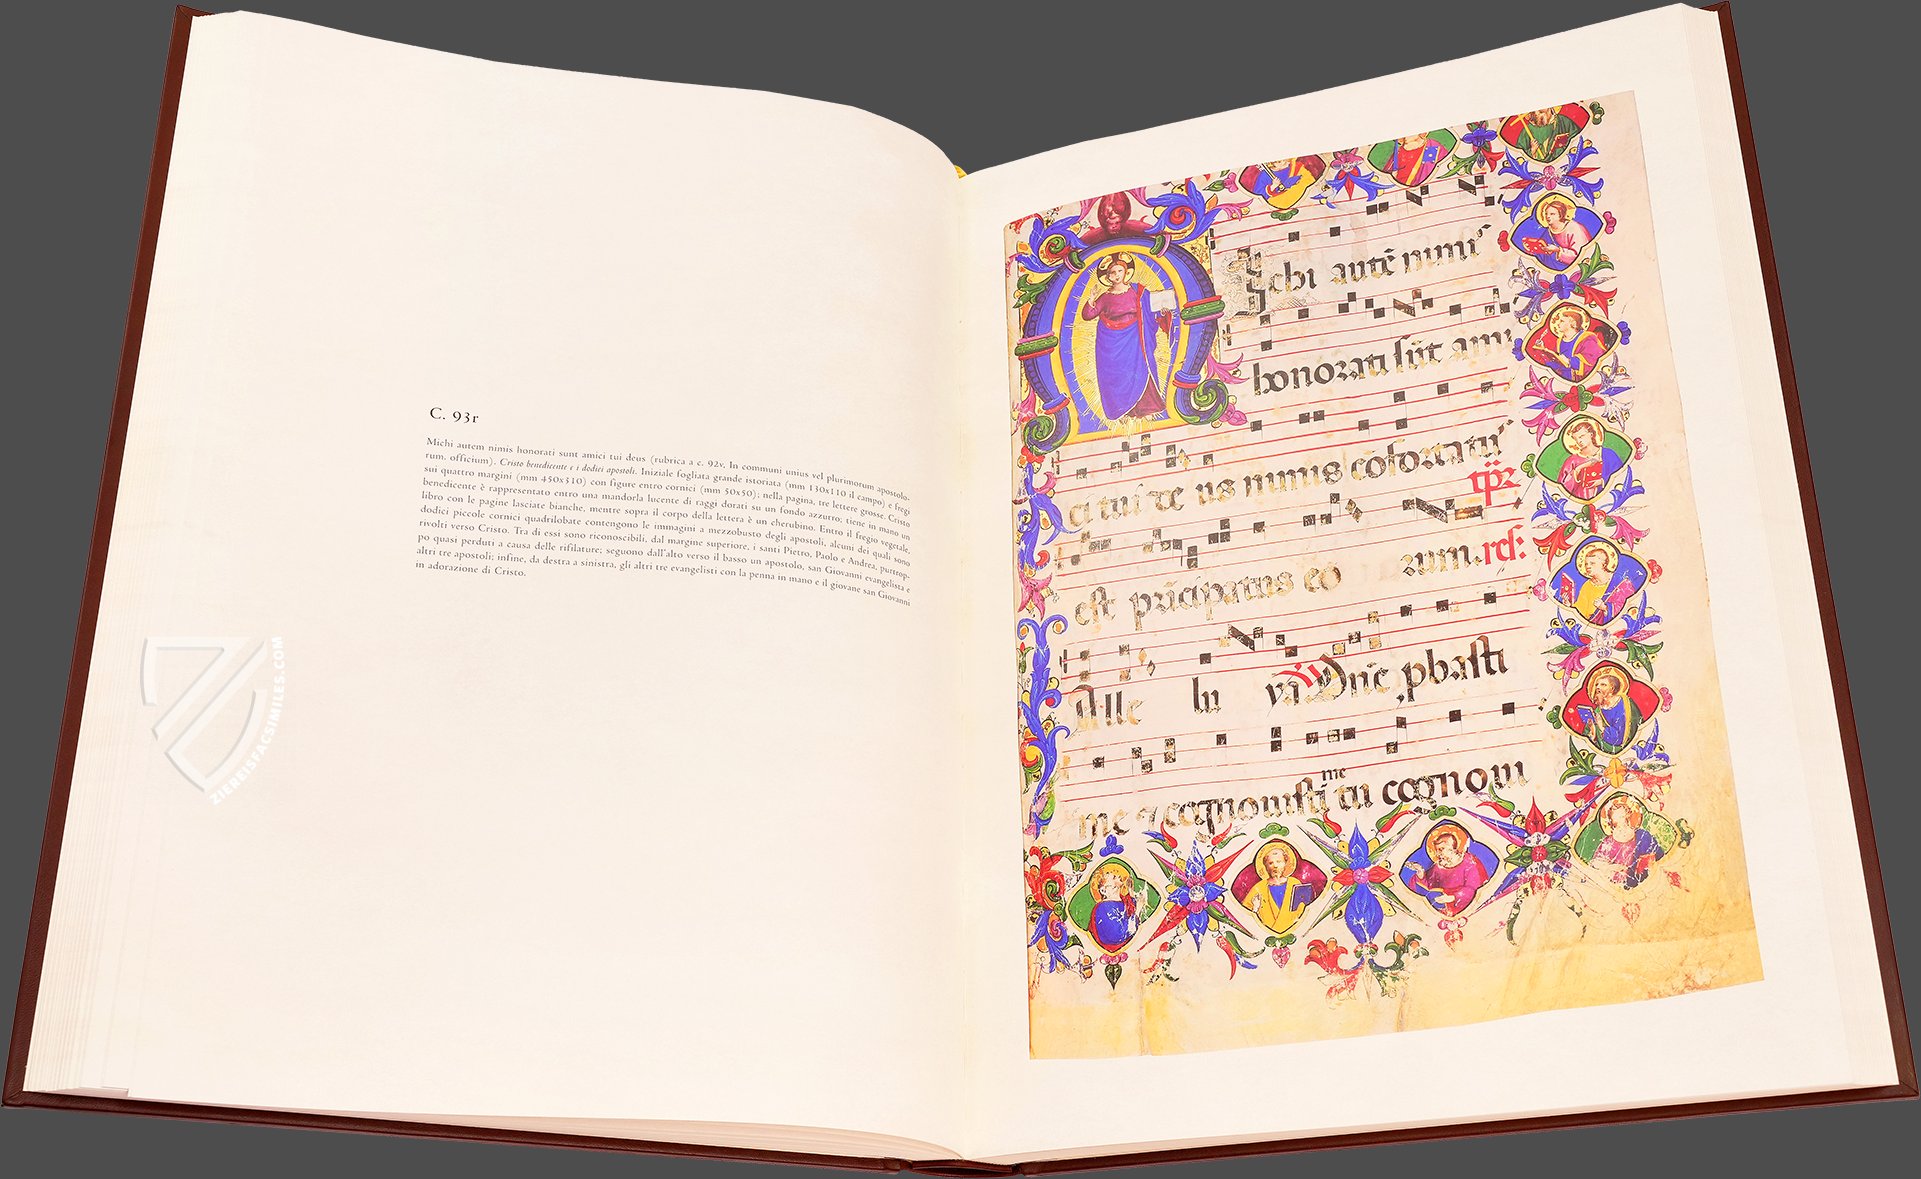 C. 93r
Michi autem nimis honorati sunt amici tui deus (rubrica a c. 92v, In communi unius vel plurimorum apostolo-
rum, officium). Cristo benedicente e i dodici apostoli. Iniziale fogliata grande istoriata (mm 130x110 il campo) e fregi
sui quattro margini (mm 450x310) con figure entro cornici (mm 50x50); nella pagina, tre lettere grosse. Cristo
benedicente è rappresentato entro una mandorla lucente di raggi dorati su un fondo azzurro; tiene in mano un
libro con le pagine lasciate bianche, mentre sopra il corpo della lettera è un cherubino. Entro il fregio vegetale,
dodici piccole cornici quadrilobate contengono le immagini a mezzobusto degli apostoli, alcuni dei quali sono
rivolti verso Cristo. Tra di essi sono riconoscibili, dal margine superiore, i santi Pietro, Paolo e Andrea, purtrop-
po quasi perduti a causa delle rifilature; seguono dall'alto verso il basso un apostolo, san Giovanni evangelista e
altri tre apostoli; infine, da destra a sinistra, gli altri tre evangelisti con la penna in mano e il giovane san Giovanni
in adorazione di Cristo.
ZIEREISFACSIMILES.COM
M ichi autē nimis
honorati sūt ami
ci tui de us nimis cōfortatus
tp̄r
est prīcipatus eo rum. ps:
Alle lu ya Dn̄e, pbasti
me
me ⁊ cognouisti tu cognoui